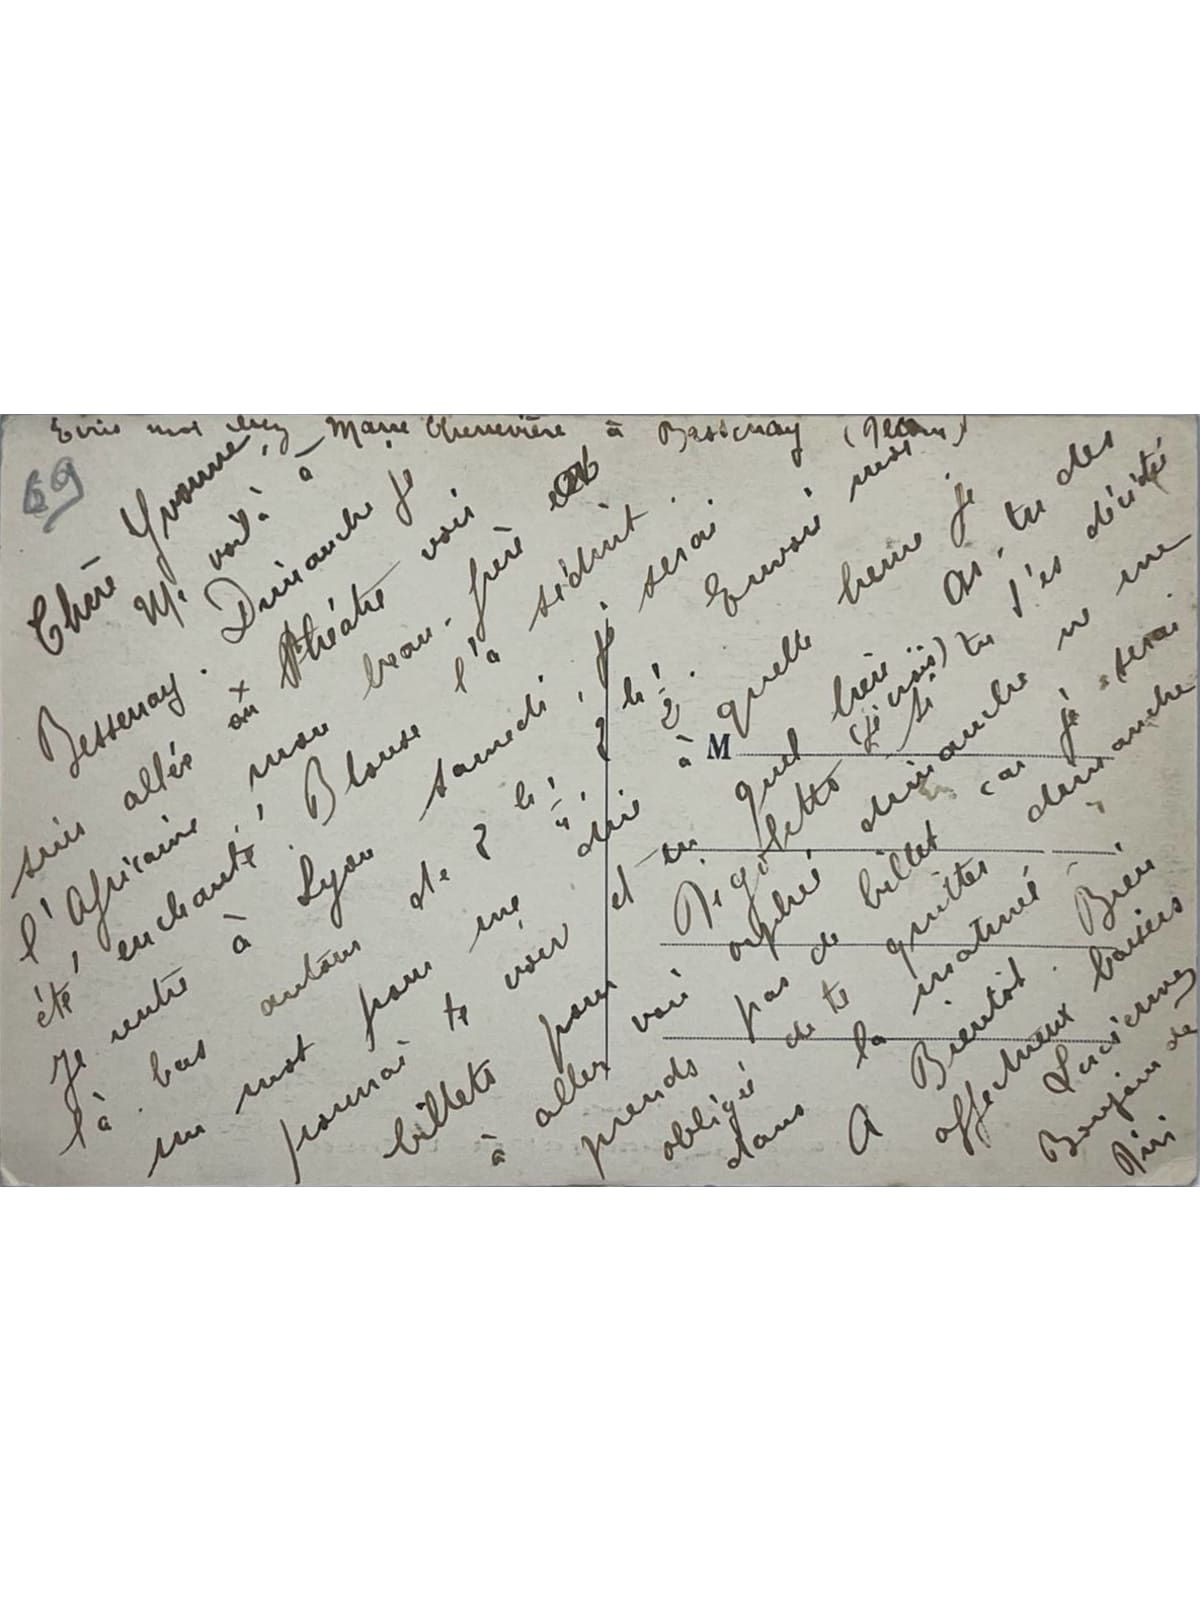 Ecris moi chez Marie Chenevière à Bessenay
69
Chère Yvonne,
Me voilà à
Bessenay. Dimanche je
suis allée au théâtre voir
l'Africaine, mon beau-frère a
été enchanté, Blouse l'a séduit.
Je rentre à Lyon samedi, je serai
là bas autour de 2 h! 2 h! Envoie moi
un mot pour me dire à quelle heure je
pourrai te voir et en quel lieu. As-tu des
billets pour Rigoletto (je vois) tu t'es décidée
à aller voir orphée dimanche ne me
prends pas de billet car je serai
obligée de te quitter dimanche
dans la matinée.
A Bientôt. Bien
affectueux baisers
Lucienne
Bonjour de
Riri
M